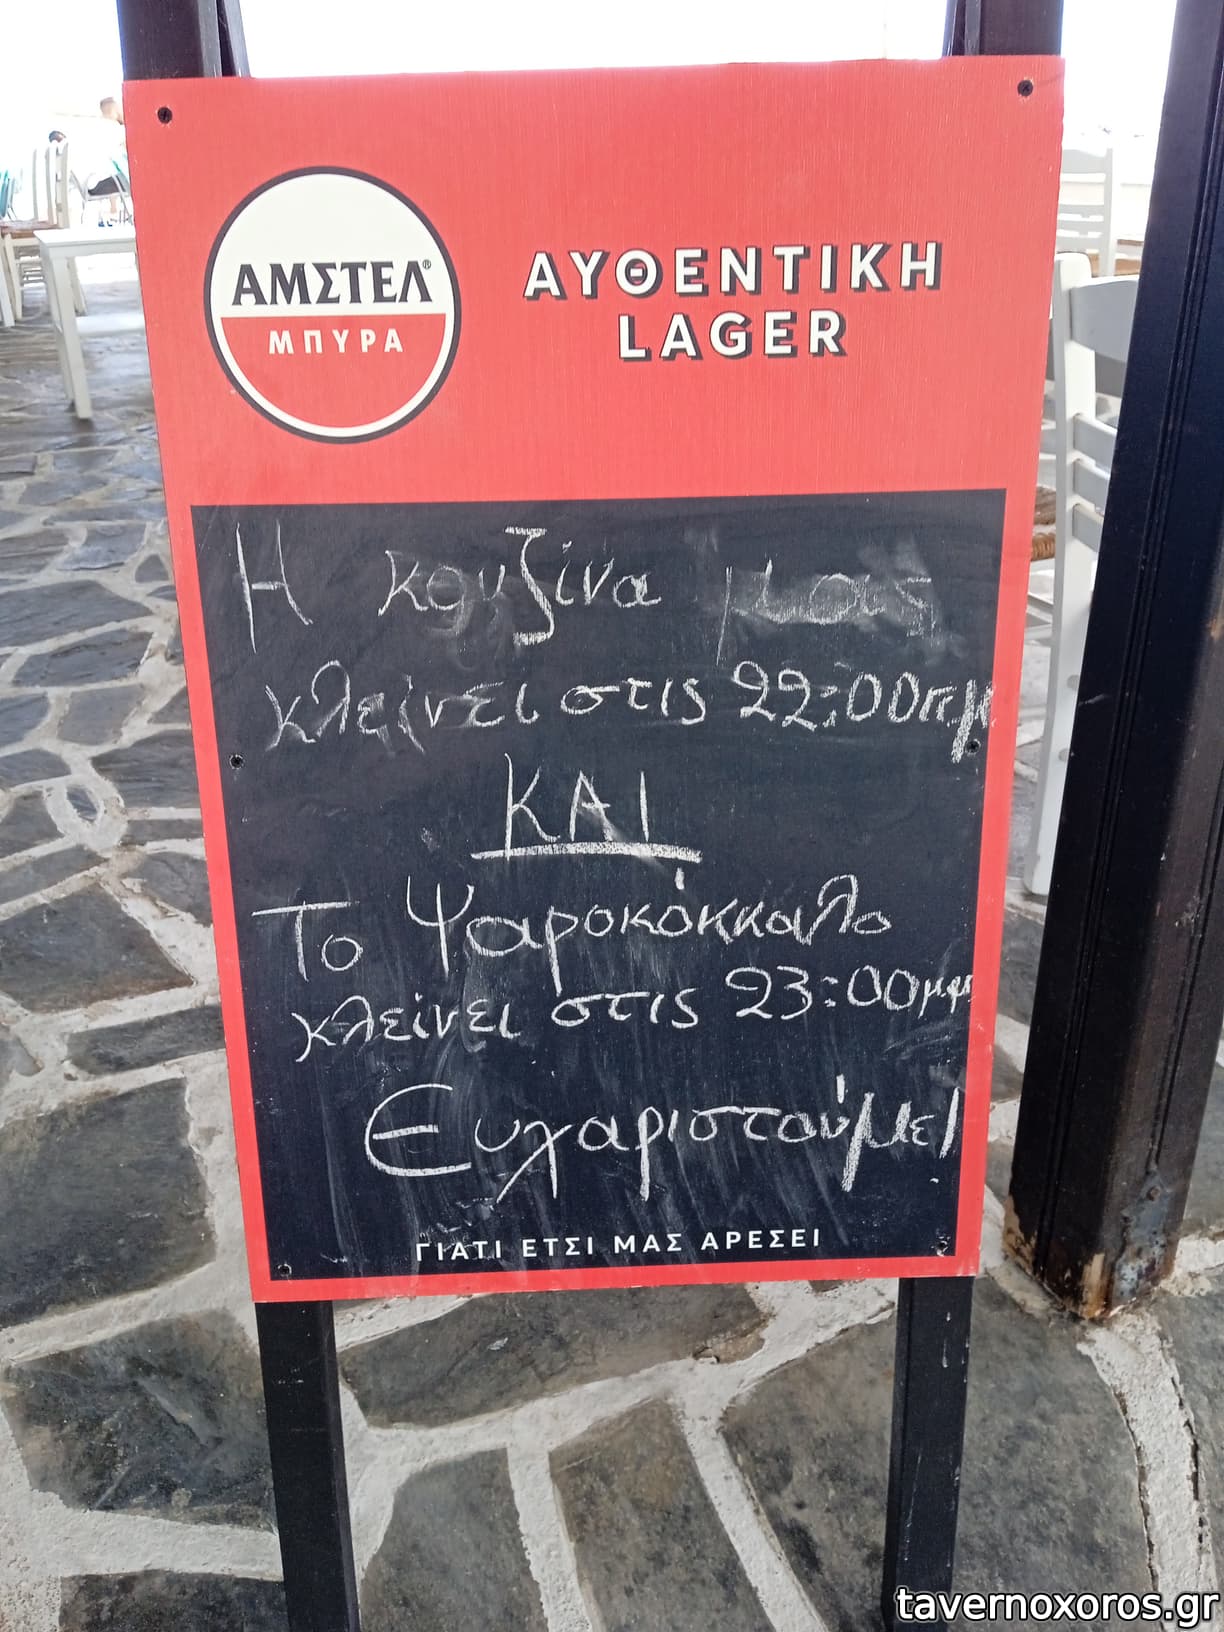 ΑΜΣΤΕΛ®
ΜΠΥΡΑ
ΑΥΘΕΝΤΙΚΗ
LAGER
Η κουζίνα μας
κλείνει στις 22:00πμ
ΚΑΙ
Το Ψαροκόκκαλο
κλείνει στις 23:00μμ
Ευχαριστούμε!
ΓΙΑΤΙ ΕΤΣΙ ΜΑΣ ΑΡΕΣΕΙ
tavernoxoros.gr